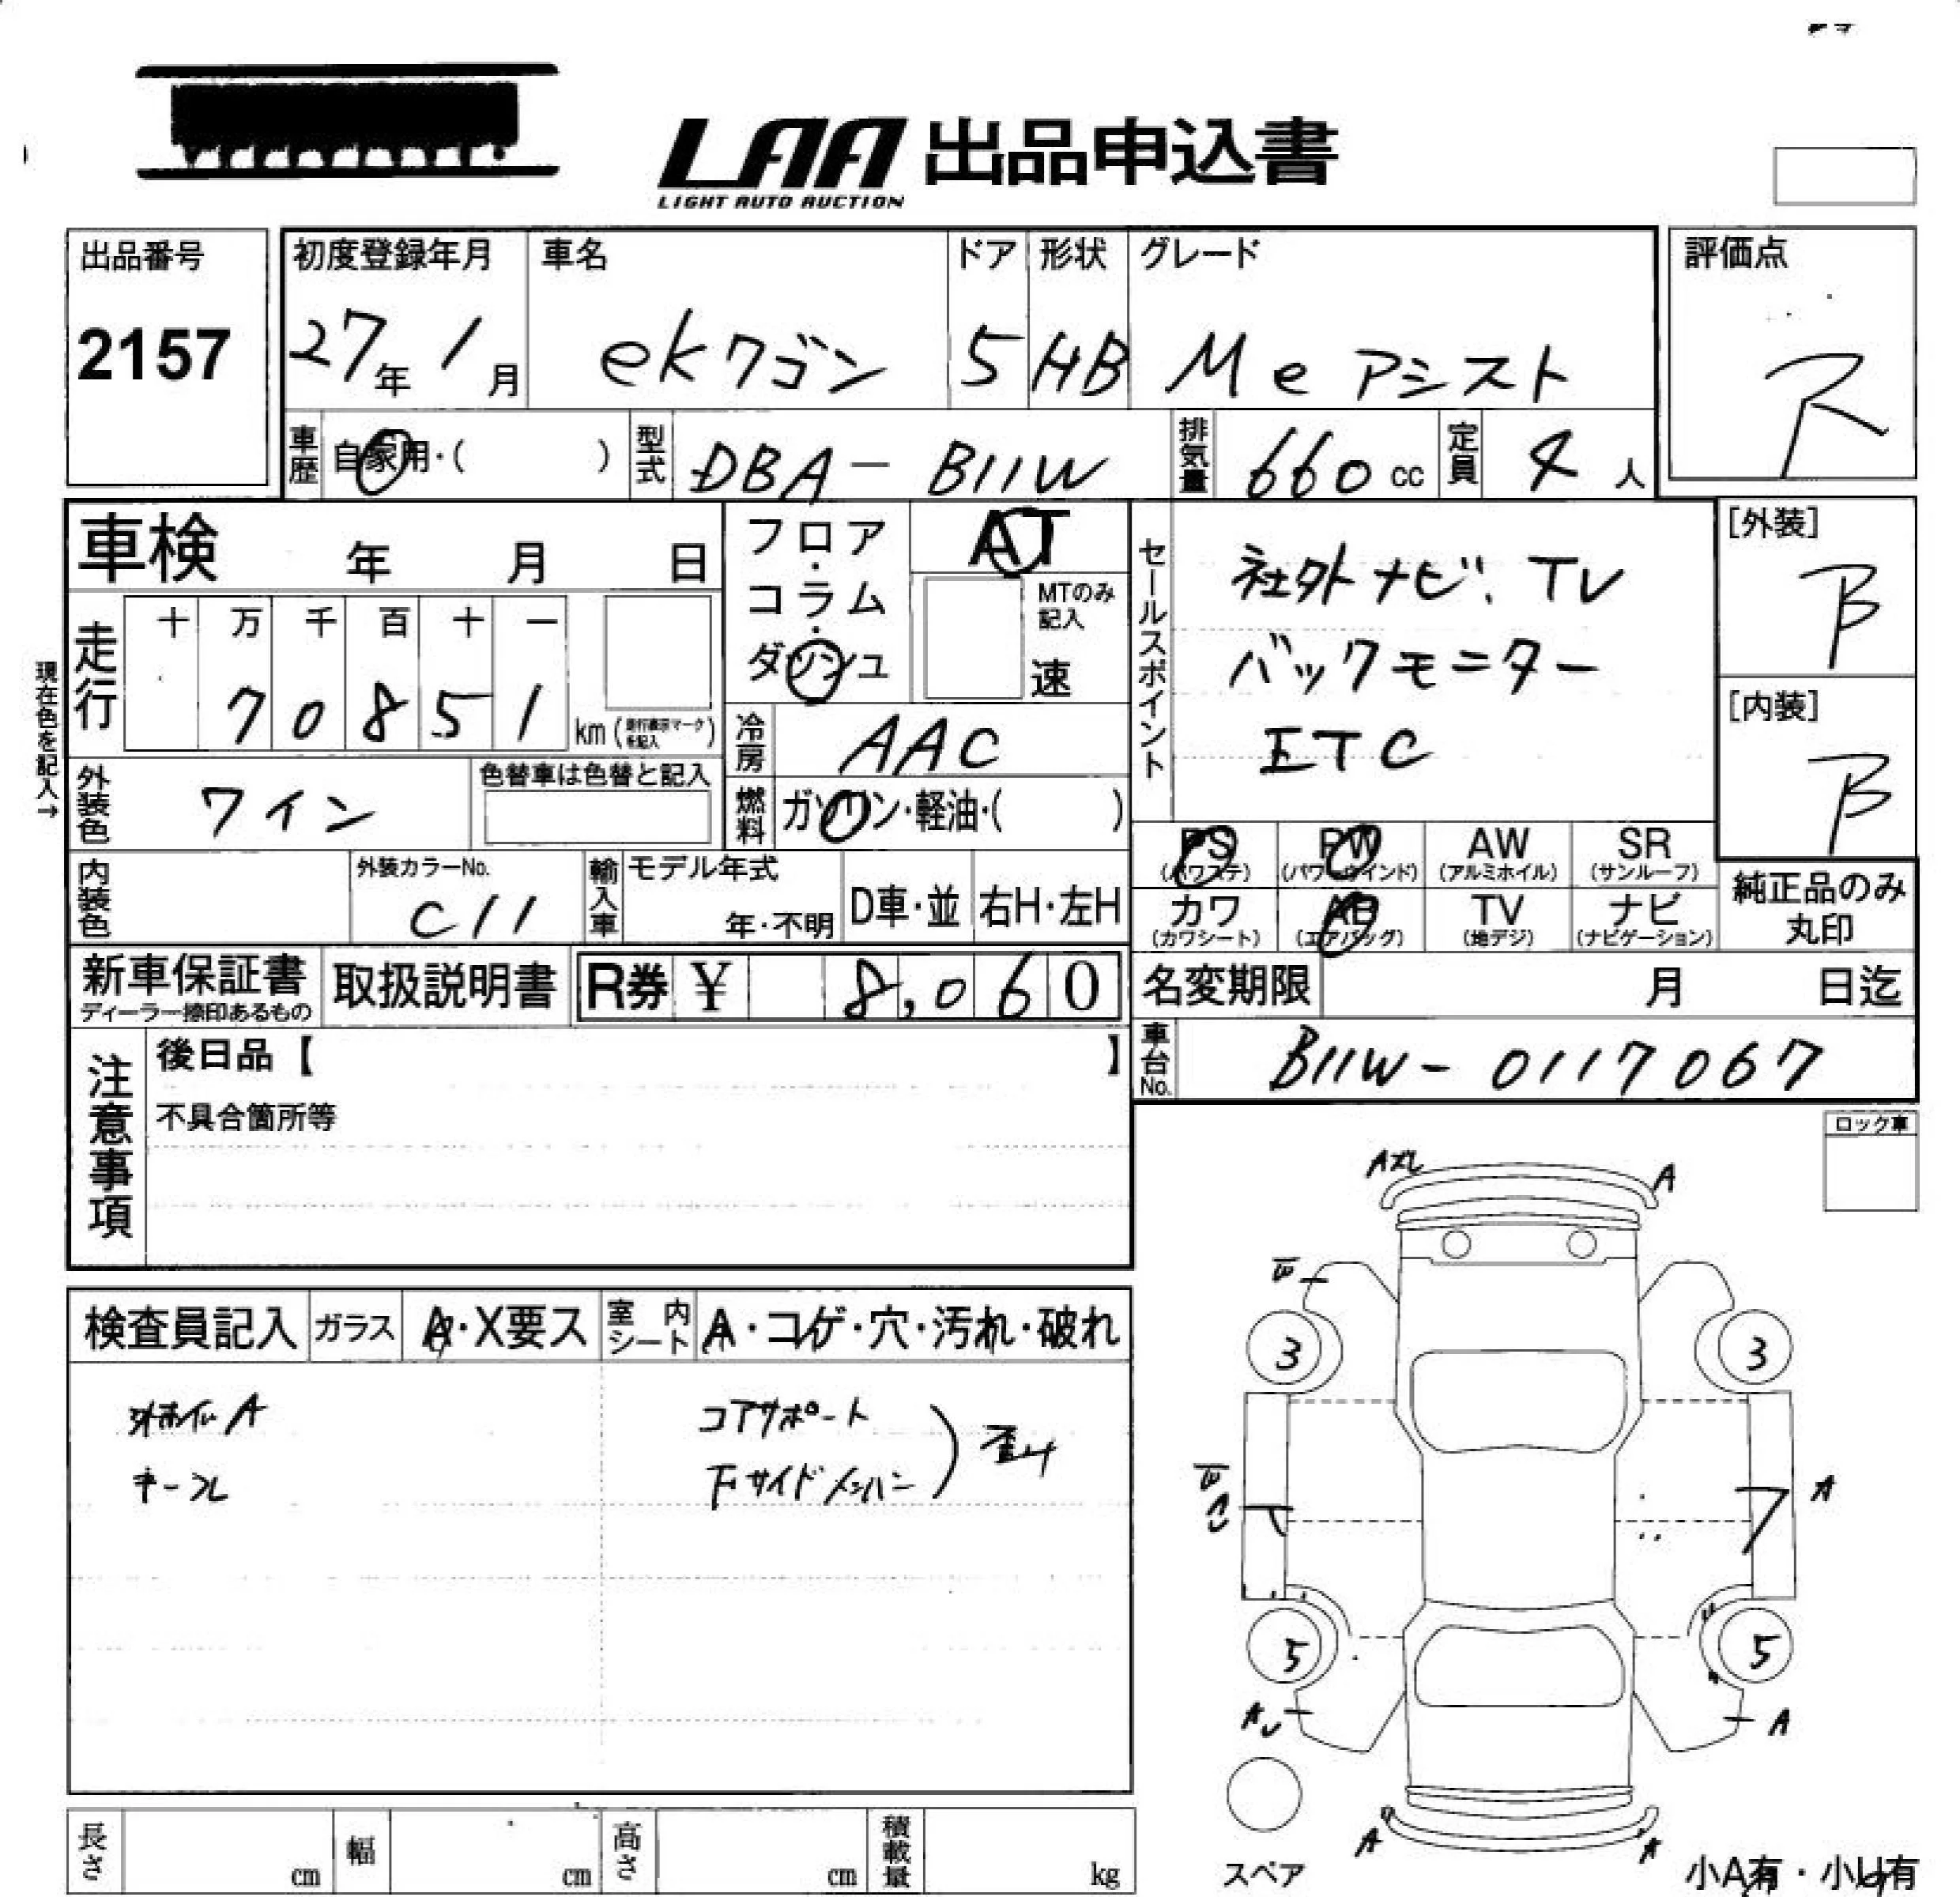 LAA 出品申込書
LIGHT AUTO AUCTION
出品番号
2157
初度登録年月
27年 1月
車名
ekワゴン
ドア
5
形状
HB
グレード
Me アシスト
評価点
R
車歴
自家用・( )
型式
DBA-B11W
排気量
660 cc
定員
4 人
車検 年 月 日
フロア・コラム・ダッシュ
AT
MTのみ記入
速
セールスポイント
社外ナビ、TV
バックモニター
ETC
[外装]
B
[内装]
B
現在色を記入→
走行
十 万 千 百 十 一
7 0 8 5 1 km (走行表示マークを記入)
冷房
AAC
外装色
ワイン
色替車は色替と記入
燃料
ガソリン・軽油・( )
PS (パワステ)
PW (パワーウインド)
AW (アルミホイル)
SR (サンルーフ)
カワ (カワシート)
AB (エアバッグ)
TV (地デジ)
ナビ (ナビゲーション)
純正品のみ丸印
内装色
外装カラーNo.
C11
輸入車
モデル年式
年・不明
D車・並
右H・左H
新車保証書
ディーラー捺印あるもの
取扱説明書
R券 ¥ 8,060
名変期限 月 日迄
車台No.
B11W-0117067
注意事項
後日品【 】
不具合箇所等
ロック車
検査員記入
ガラス
A・X要ス
室内シート
A・コゲ・穴・汚れ・破れ
キーズレ
コアサポート
下サイドメンバー
歪み
A
3
3
A
5
5
A
A
A
スペア
小A有・小U有
長さ cm
幅 cm
高さ cm
積載量 kg